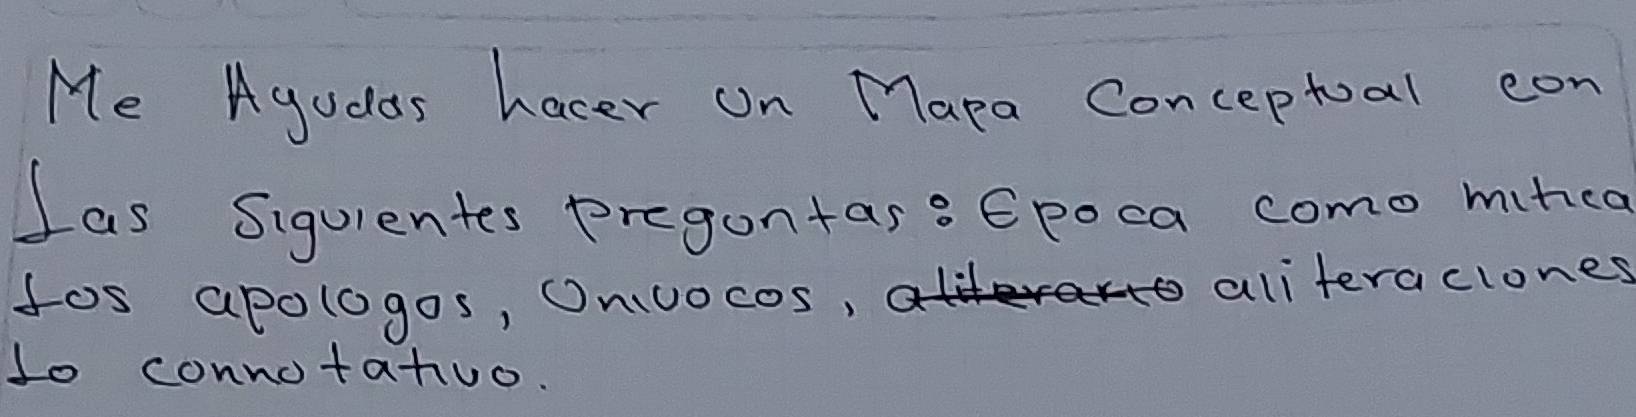 Me Ayudas hacer un Mapa Conceptual con
Las Siguientes preguntas: Epoca como mitica
Los apologos, Univocos, aliterarto aliteraciones
Lo connotativo.